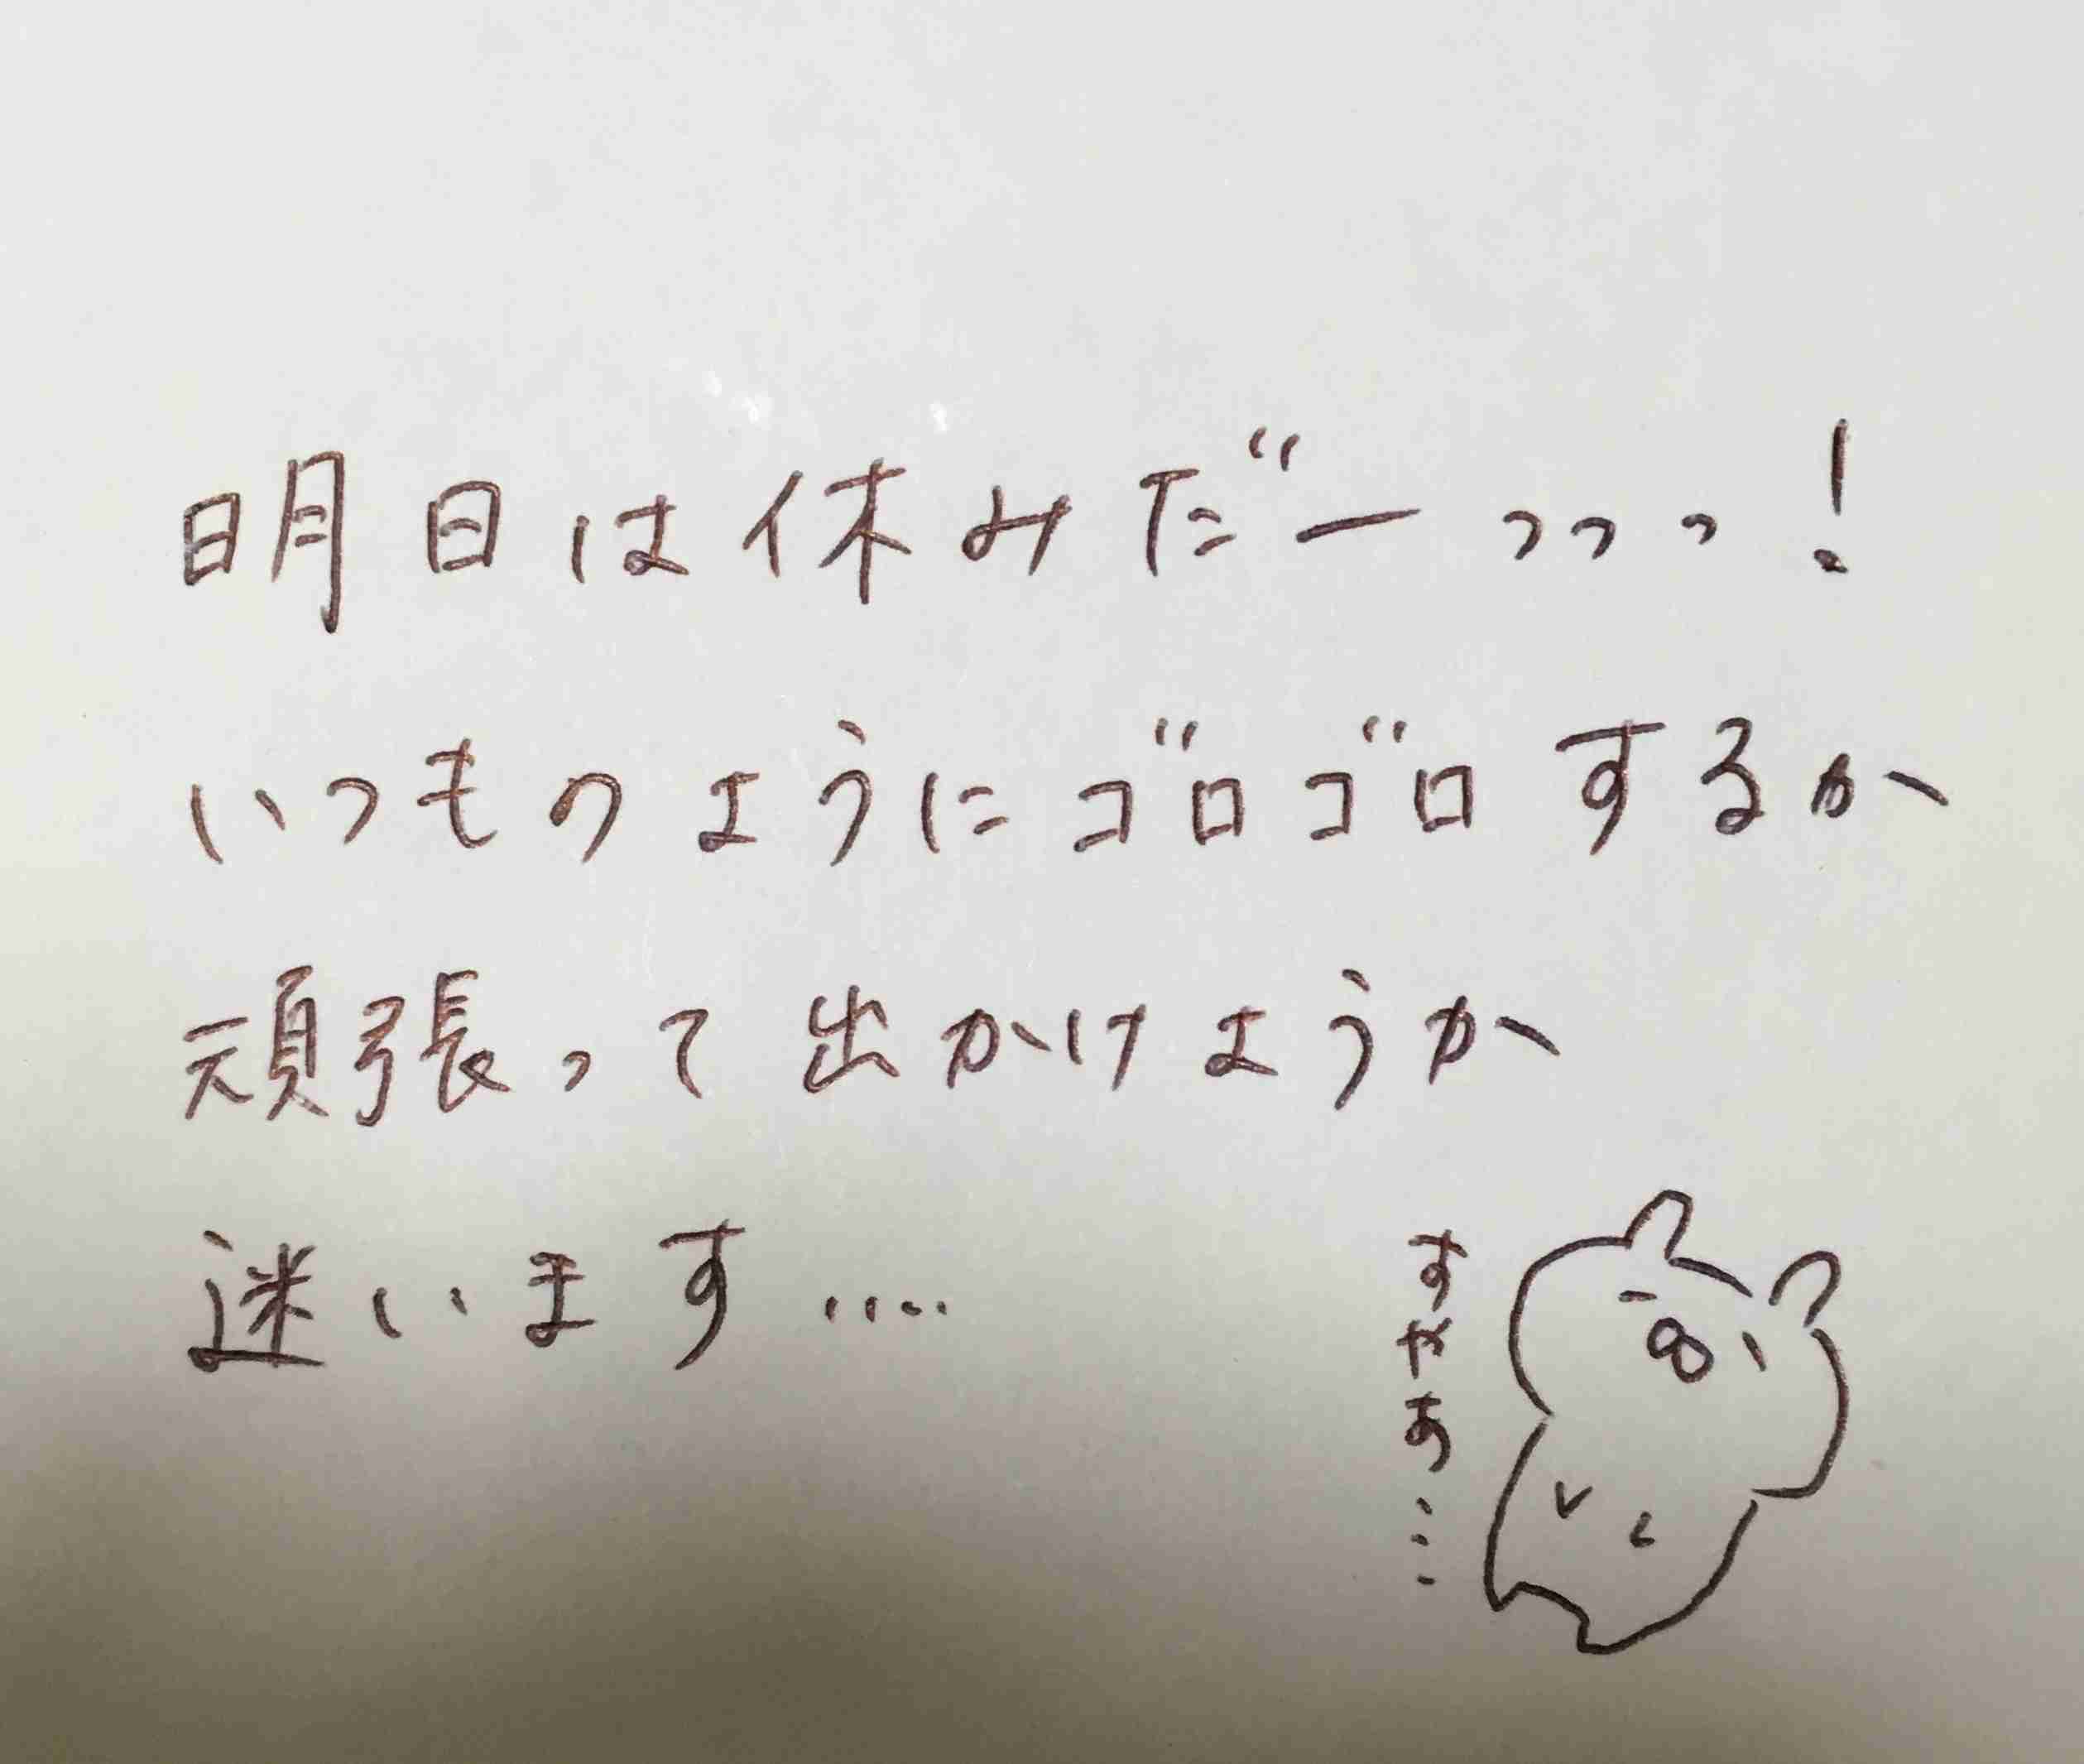 明日は休みだーっっっ!
いつものようにゴロゴロするか
頑張って出かけようか
迷います....
すやす…